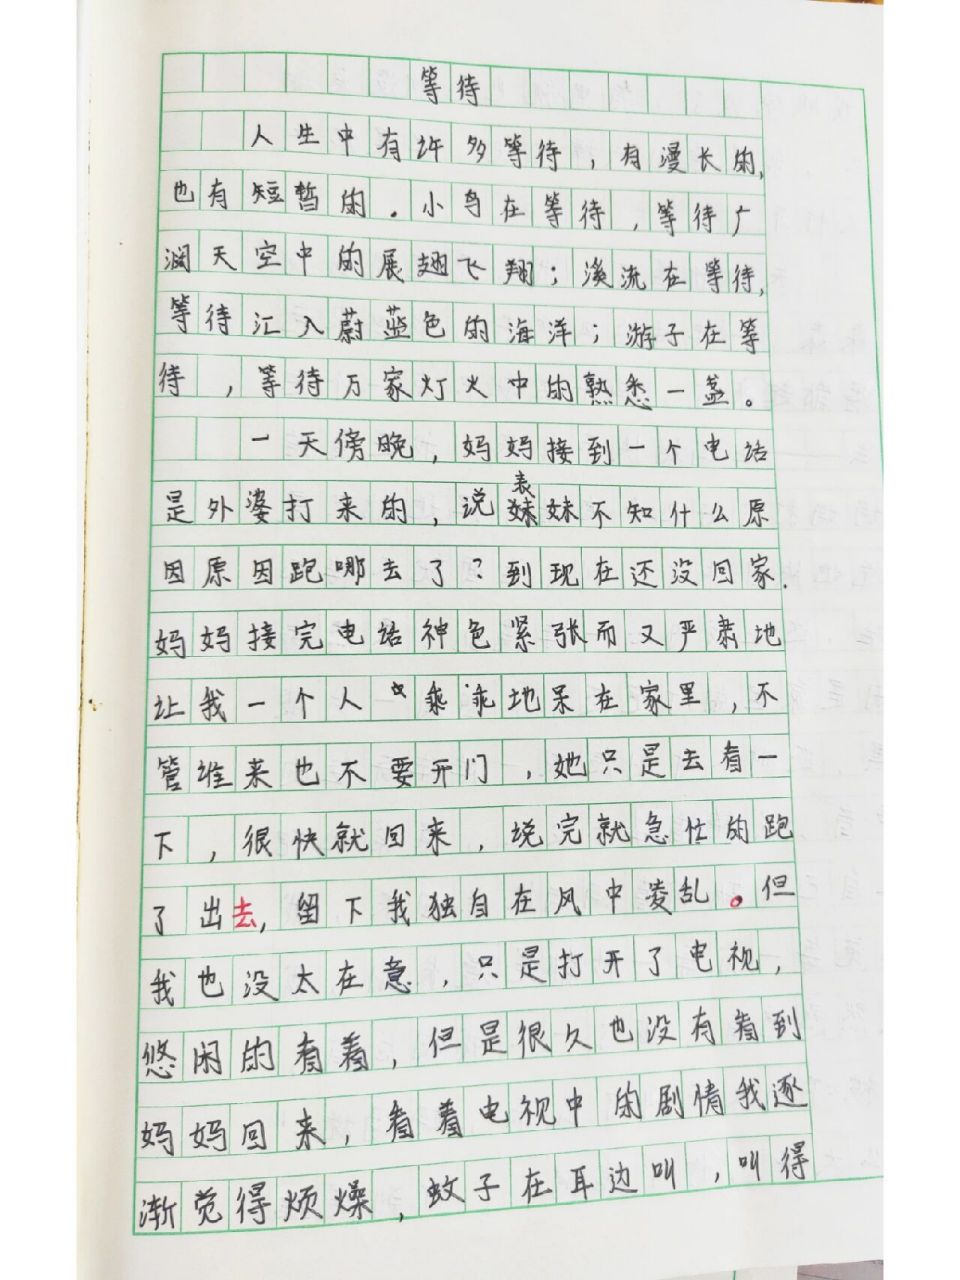 等待
人生中有许多等待，有漫长的，
也有短暂的。小鸟在等待，等待广
阔天空中的展翅飞翔；溪流在等待，
等待汇入蔚蓝色的海洋；游子在等
待，等待万家灯火中的熟悉一盏。
一天傍晚，妈妈接到一个电话
是外婆打来的，说表妹妹不知什么原
因原因跑哪去了？到现在还没回家.
妈妈接完电话神色紧张而又严肃地
让我一个人乖乖地呆在家里，不
管谁来也不要开门，她只是去看一
下，很快就回来，说完就急忙的跑
了出去，留下我独自在风中凌乱。但
我也没太在意，只是打开了电视，
悠闲的看着，但是很久也没有看到
妈妈回来，看着电视中的剧情我逐
渐觉得烦燥，蚊子在耳边叫，叫得